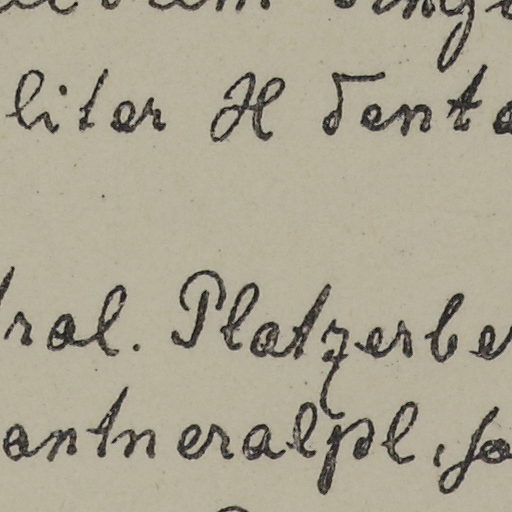 liter H denta
ral. Platzerbe
antneralpl, so